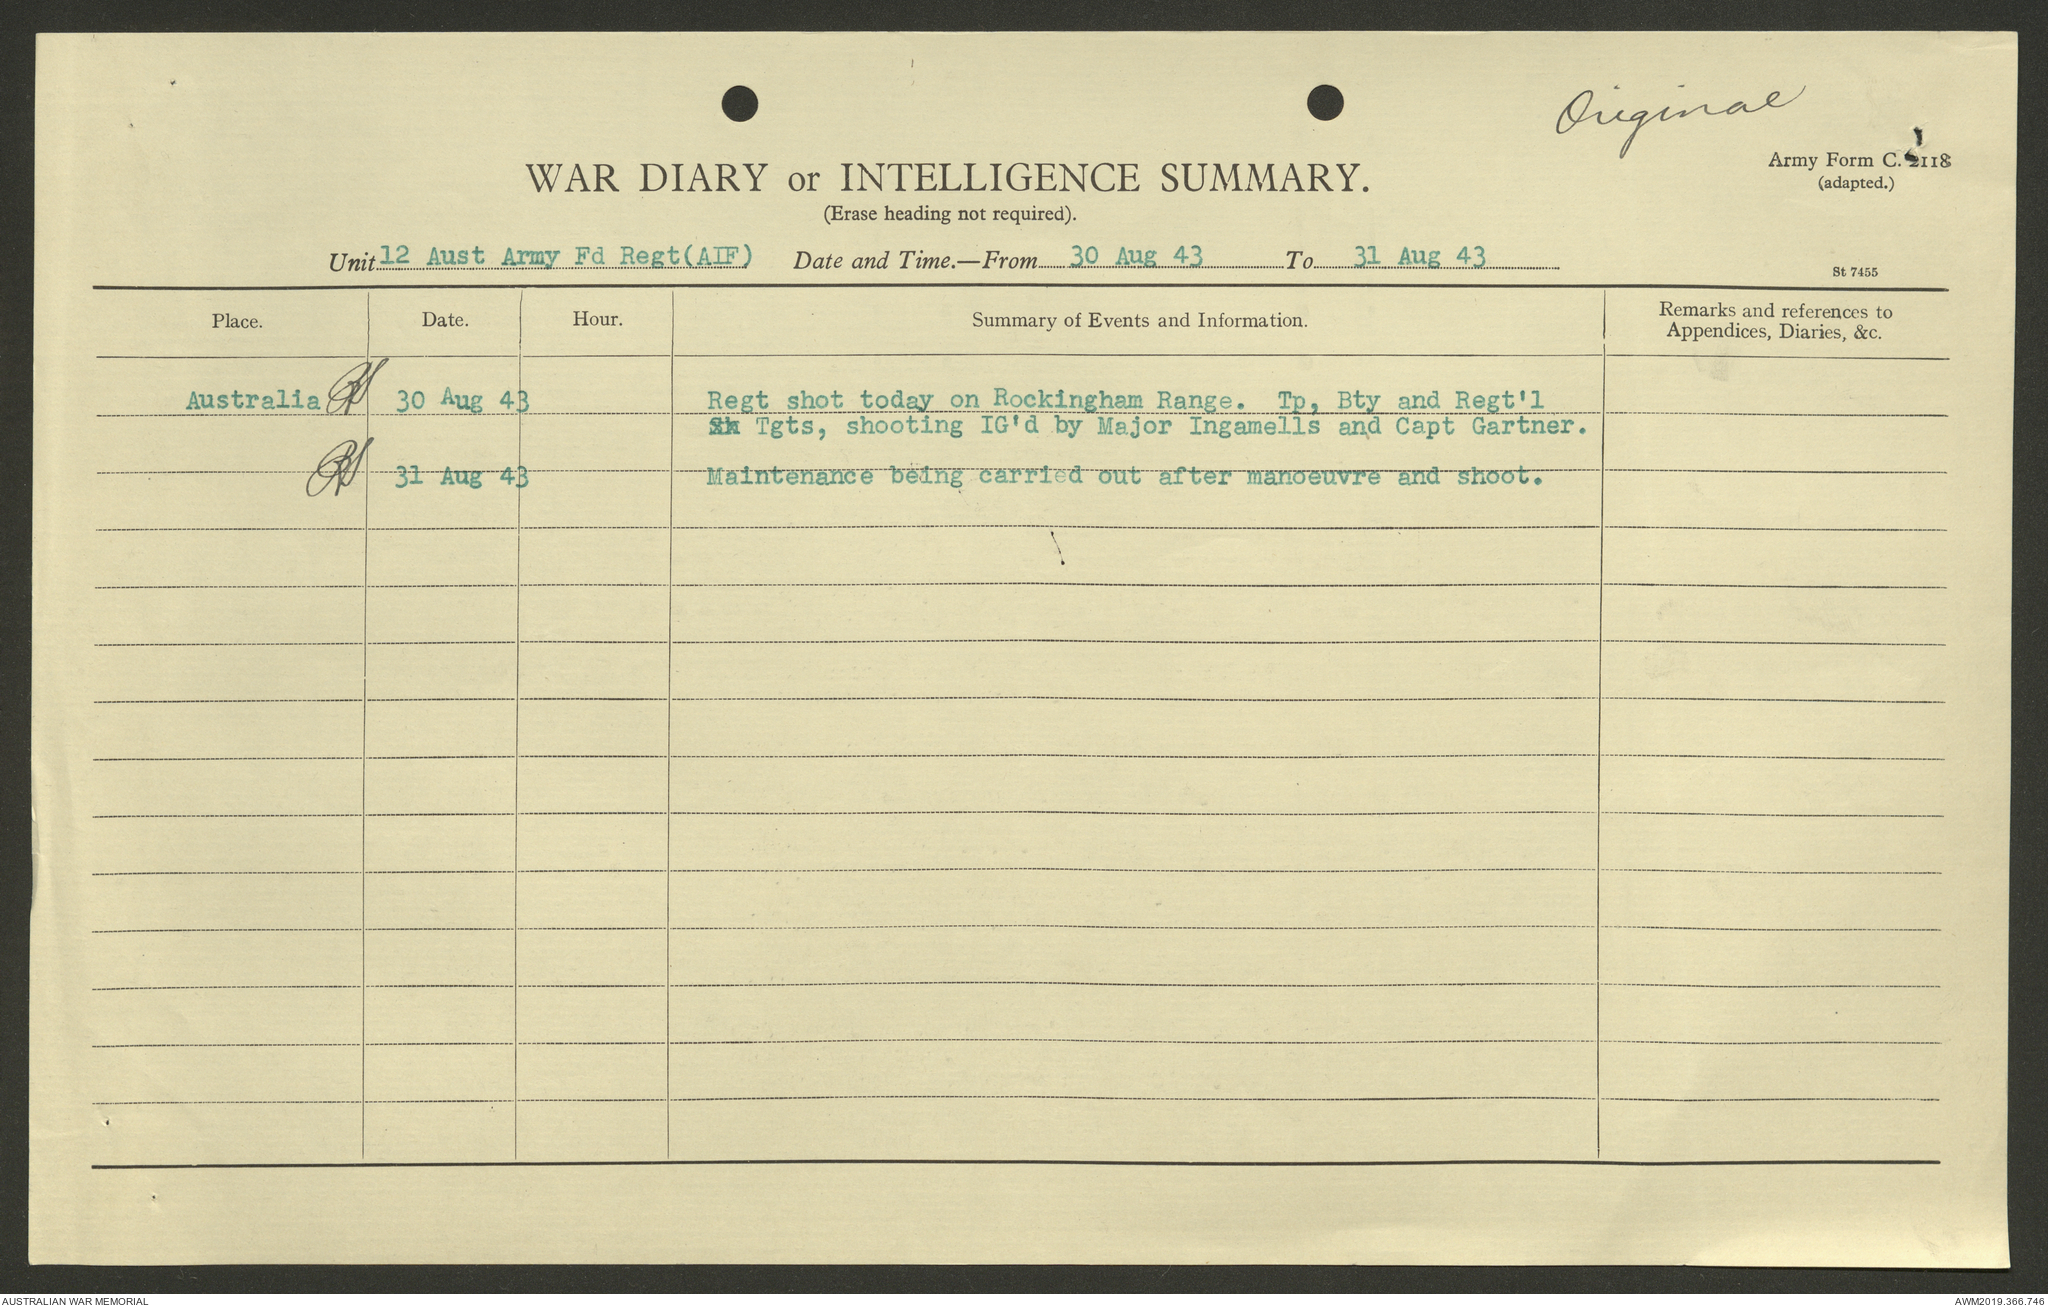 Original
Army Form C. 2118
(adapted.)
WAR DIARY or INTELLIGENCE SUMMARY.
(Erase heading not required).
Unit 12 Aust Army Fd Regt(AIF) Date and Time.—From 30 Aug 43 To 31 Aug 43
St 7455
Place. Date. Hour. Summary of Events and Information. Remarks and references to
Appendices, Diaries, &c.
Australia 30 Aug 43 Regt shot today on Rockingham Range. Tp, Bty and Regt'l
Tgts, shooting IG'd by Major Ingamells and Capt Gartner.
31 Aug 43 Maintenance being carried out after manoeuvre and shoot.
AUSTRALIAN WAR MEMORIAL
AWM2019.366.746